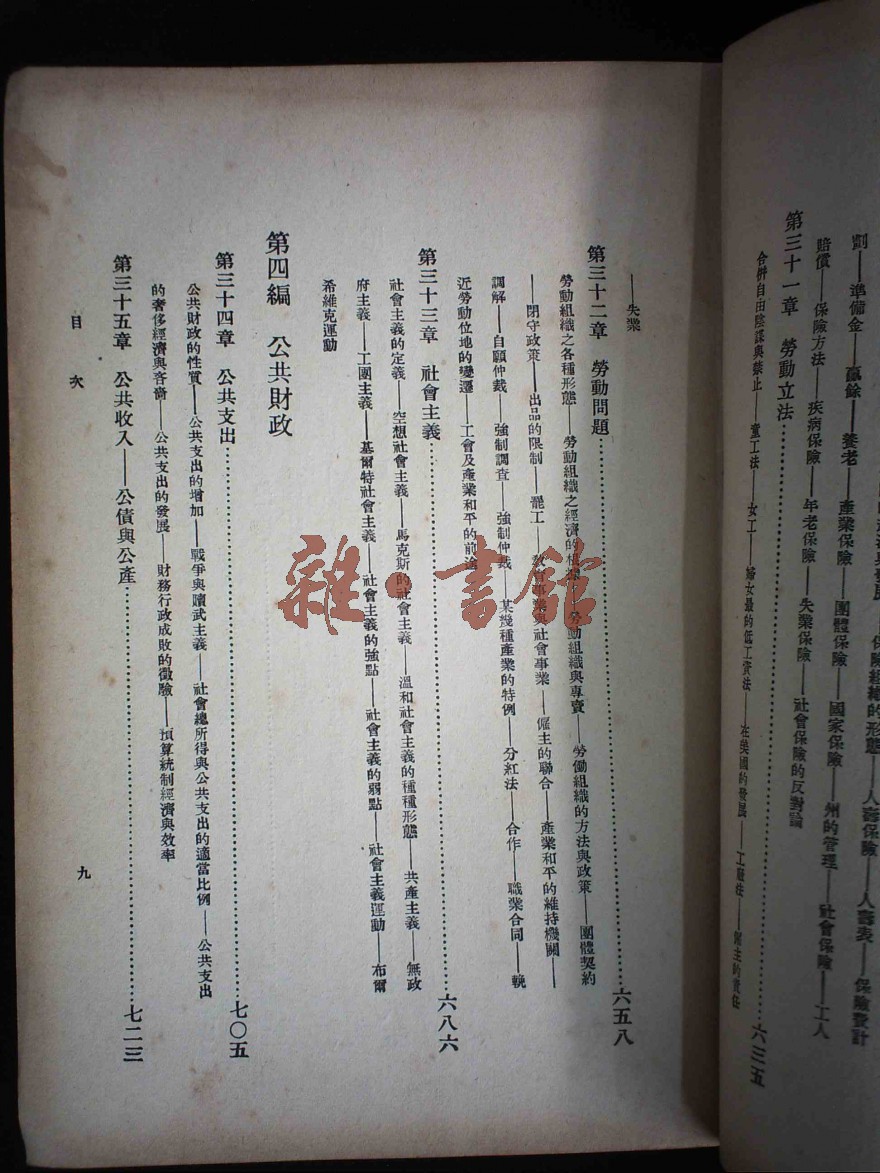 劃——準備金——贏餘——養老——產業保險——團體保險——國家保險——州的管理——社會保險——工人
賠償——保險方法——疾病保險——年老保險——失業保險——社會保險的反對論
第三十一章　勞動立法……六三五
合併自由陰謀與禁止——童工法——女工——婦女最的低工資法——在美國的發展——工廠法——僱主的責任
——失業
第三十二章　勞動問題……六五八
勞動組織之各種形態——勞動組織之經濟的根據——勞動組織與專賣——勞働組織的方法與政策——團體契約
——閉守政策——出品的限制——罷工——教育事業與社會事業——僱主的聯合——產業和平的維持機關——
調解——自願仲裁——強制調查——強制仲裁——某幾種產業的特例——分紅法——合作——職業合同——輓
近勞動位地的變遷——工會及產業和平的前途
第三十三章　社會主義……六八六
社會主義的定義——空想社會主義——馬克斯的社會主義——溫和社會主義的種種形態——共產主義——無政
府主義——工團主義——基爾特社會主義——社會主義的強點——社會主義的弱點——社會主義運動——布爾
希維克運動
第四編　公共財政
第三十四章　公共支出……七〇五
公共財政的性質——公共支出的增加——戰爭與贖武主義——社會總所得與公共支出的適當比例——公共支出
的奢侈經濟與吝嗇——公共支出的發展——財務行政成敗的徵驗——預算統制經濟與效率
第三十五章　公共收入——公債與公產……七二三
目次
九
雜·書館